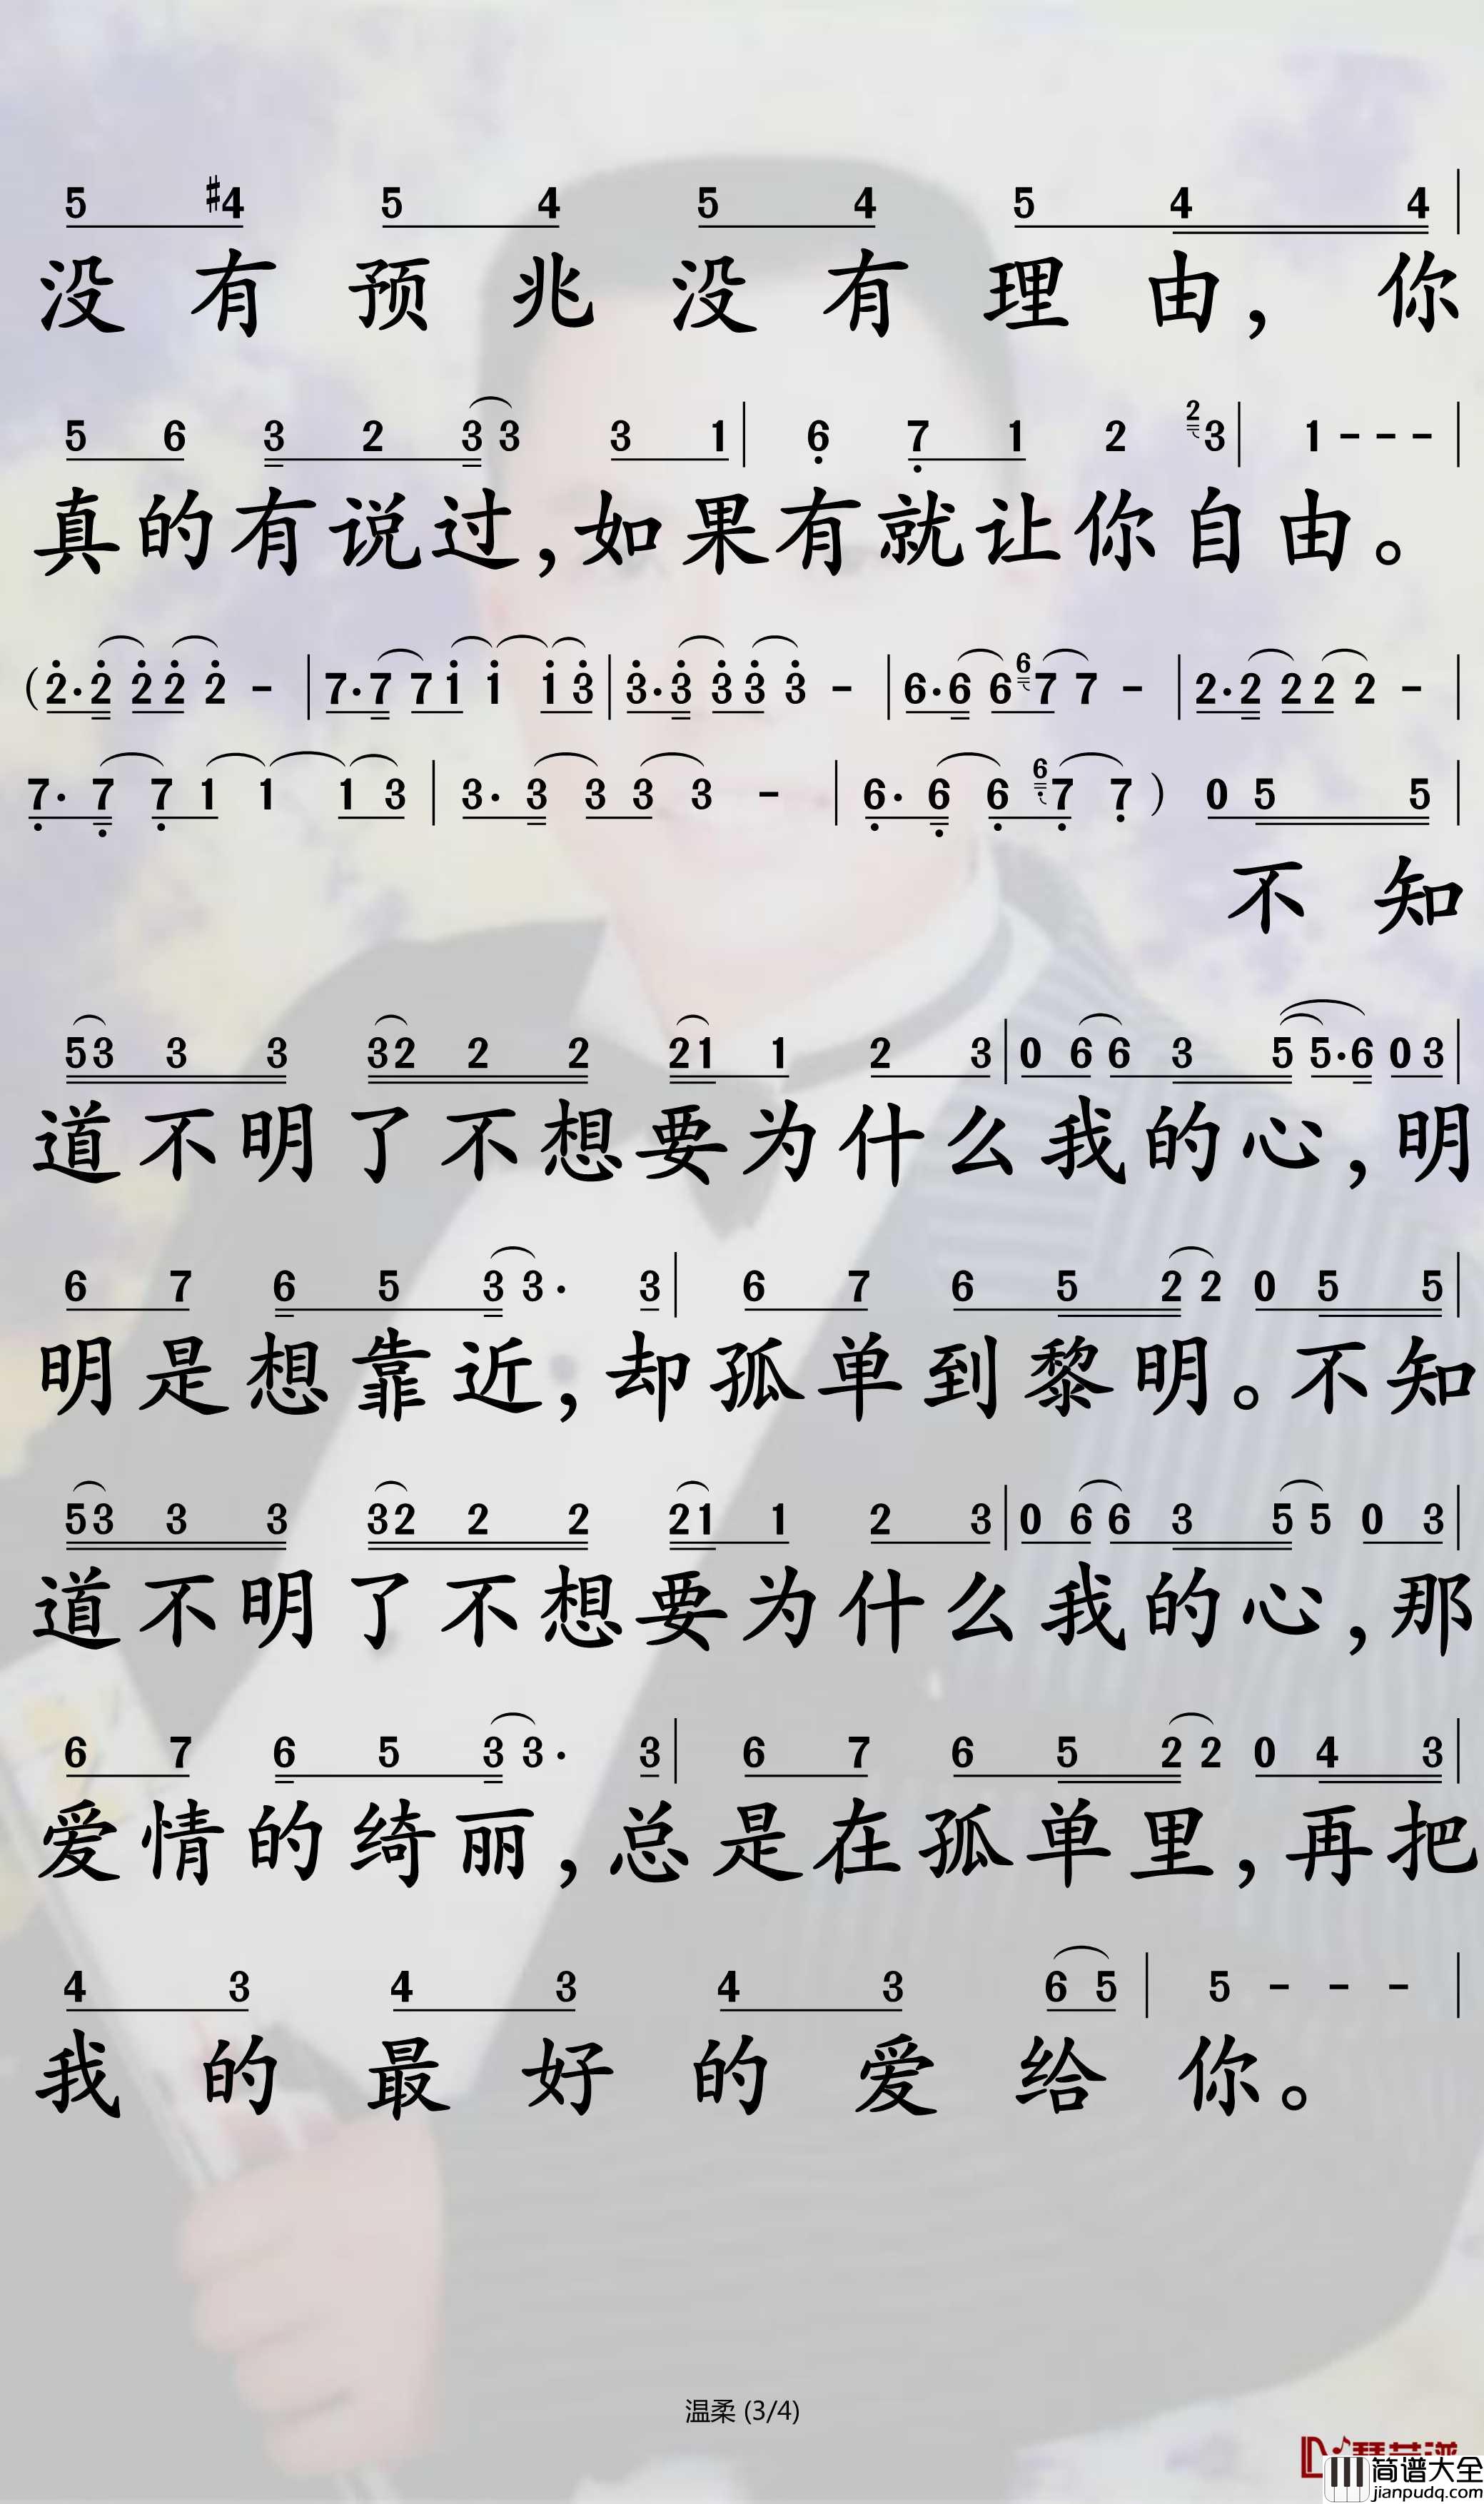 5 #4 5 4 5 4 5 4 4 |
没有预兆没有理由，你
5 6 3 2 3 3 3 1 | 6 7 1 2 2 3 | 1 - - - |
真的有说过，如果有就让你自由。
(2·2 2 2 2 - | 7·7 7 1 1 1 3 | 3·3 3 3 3 - | 6·6 6 6 7 7 - | 2·2 2 2 2 - |
7·7 7 1 1 1 3 | 3·3 3 3 3 - | 6·6 6 6 7 7) 0 5 5 |
不知
5 3 3 3 3 2 2 2 2 1 1 2 3 | 0 6 6 3 5 5·6 0 3 |
道不明了不想要为什么我的心，明
6 7 6 5 3 3· 3 | 6 7 6 5 2 2 0 5 5 |
明是想靠近，却孤单到黎明。不知
5 3 3 3 3 2 2 2 2 1 1 2 3 | 0 6 6 3 5 5 0 3 |
道不明了不想要为什么我的心，那
6 7 6 5 3 3· 3 | 6 7 6 5 2 2 0 4 3 |
爱情的绮丽，总是在孤单里，再把
4 3 4 3 4 3 6 5 | 5 - - - |
我的最好的爱给你。
温柔 (3/4)
简谱大全
jianpudq.com